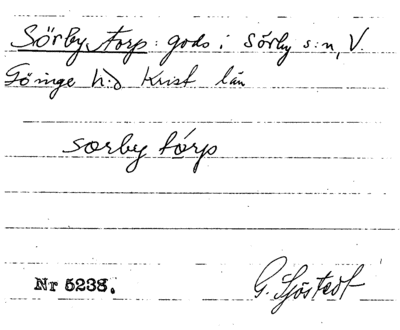 Sörby torp: gods i Sörby s:n, V.
Göinge h:d Krist län
sœrby tórp
Nr 5238.
G. Sjöstedt